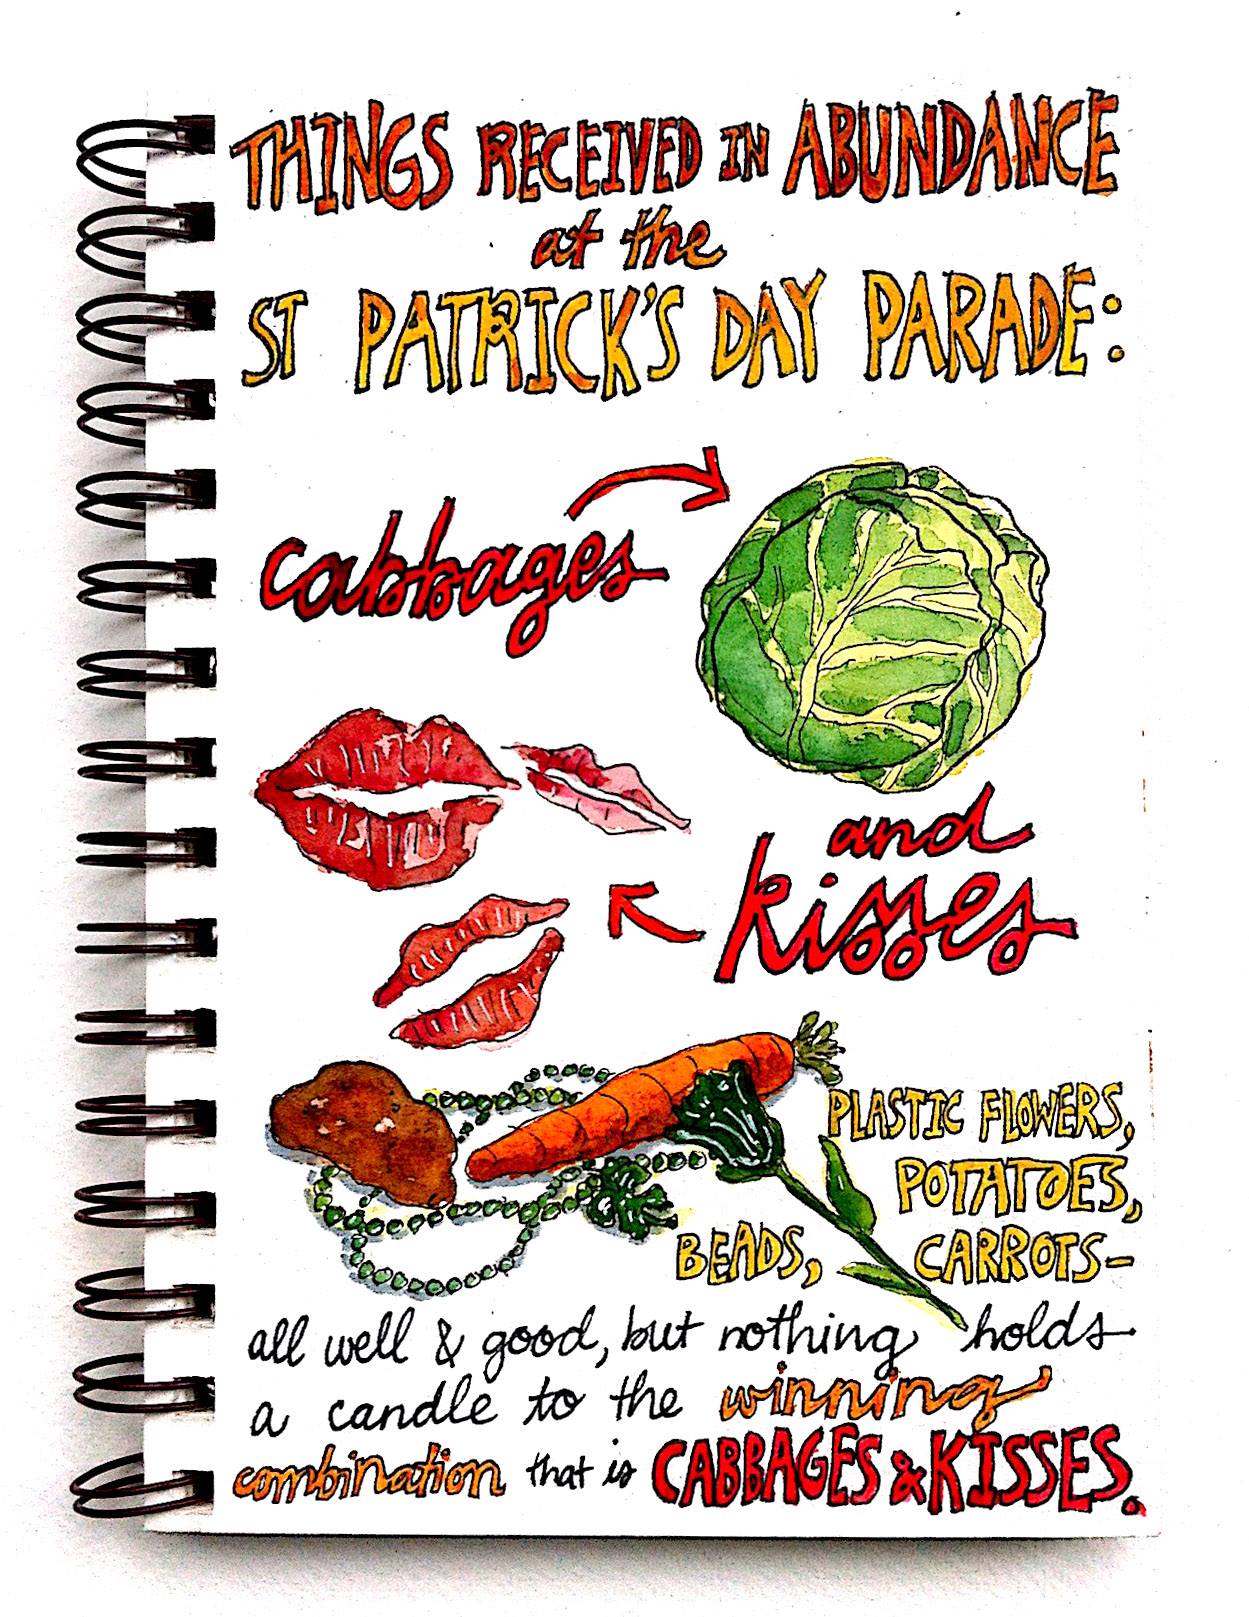 THINGS RECEIVED IN ABUNDANCE
at the
ST PATRICK'S DAY PARADE:
cabbages
and
kisses
PLASTIC FLOWERS,
POTATOES,
BEADS, CARROTS-
all well & good, but nothing holds
a candle to the winning
combination that is CABBAGES & KISSES.